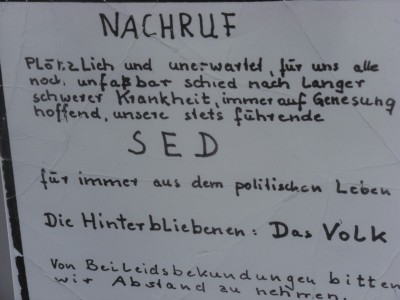 NACHRUF
Plötzlich und unerwartet, für uns alle
noch unfaßbar schied nach langer
schwerer Krankheit, immer auf Genesung
hoffend, unsere stets führende
SED
für immer aus dem politischen Leben
Die Hinterbliebenen: Das Volk
Von Beileidsbekundungen bitten
wir Abstand zu nehmen